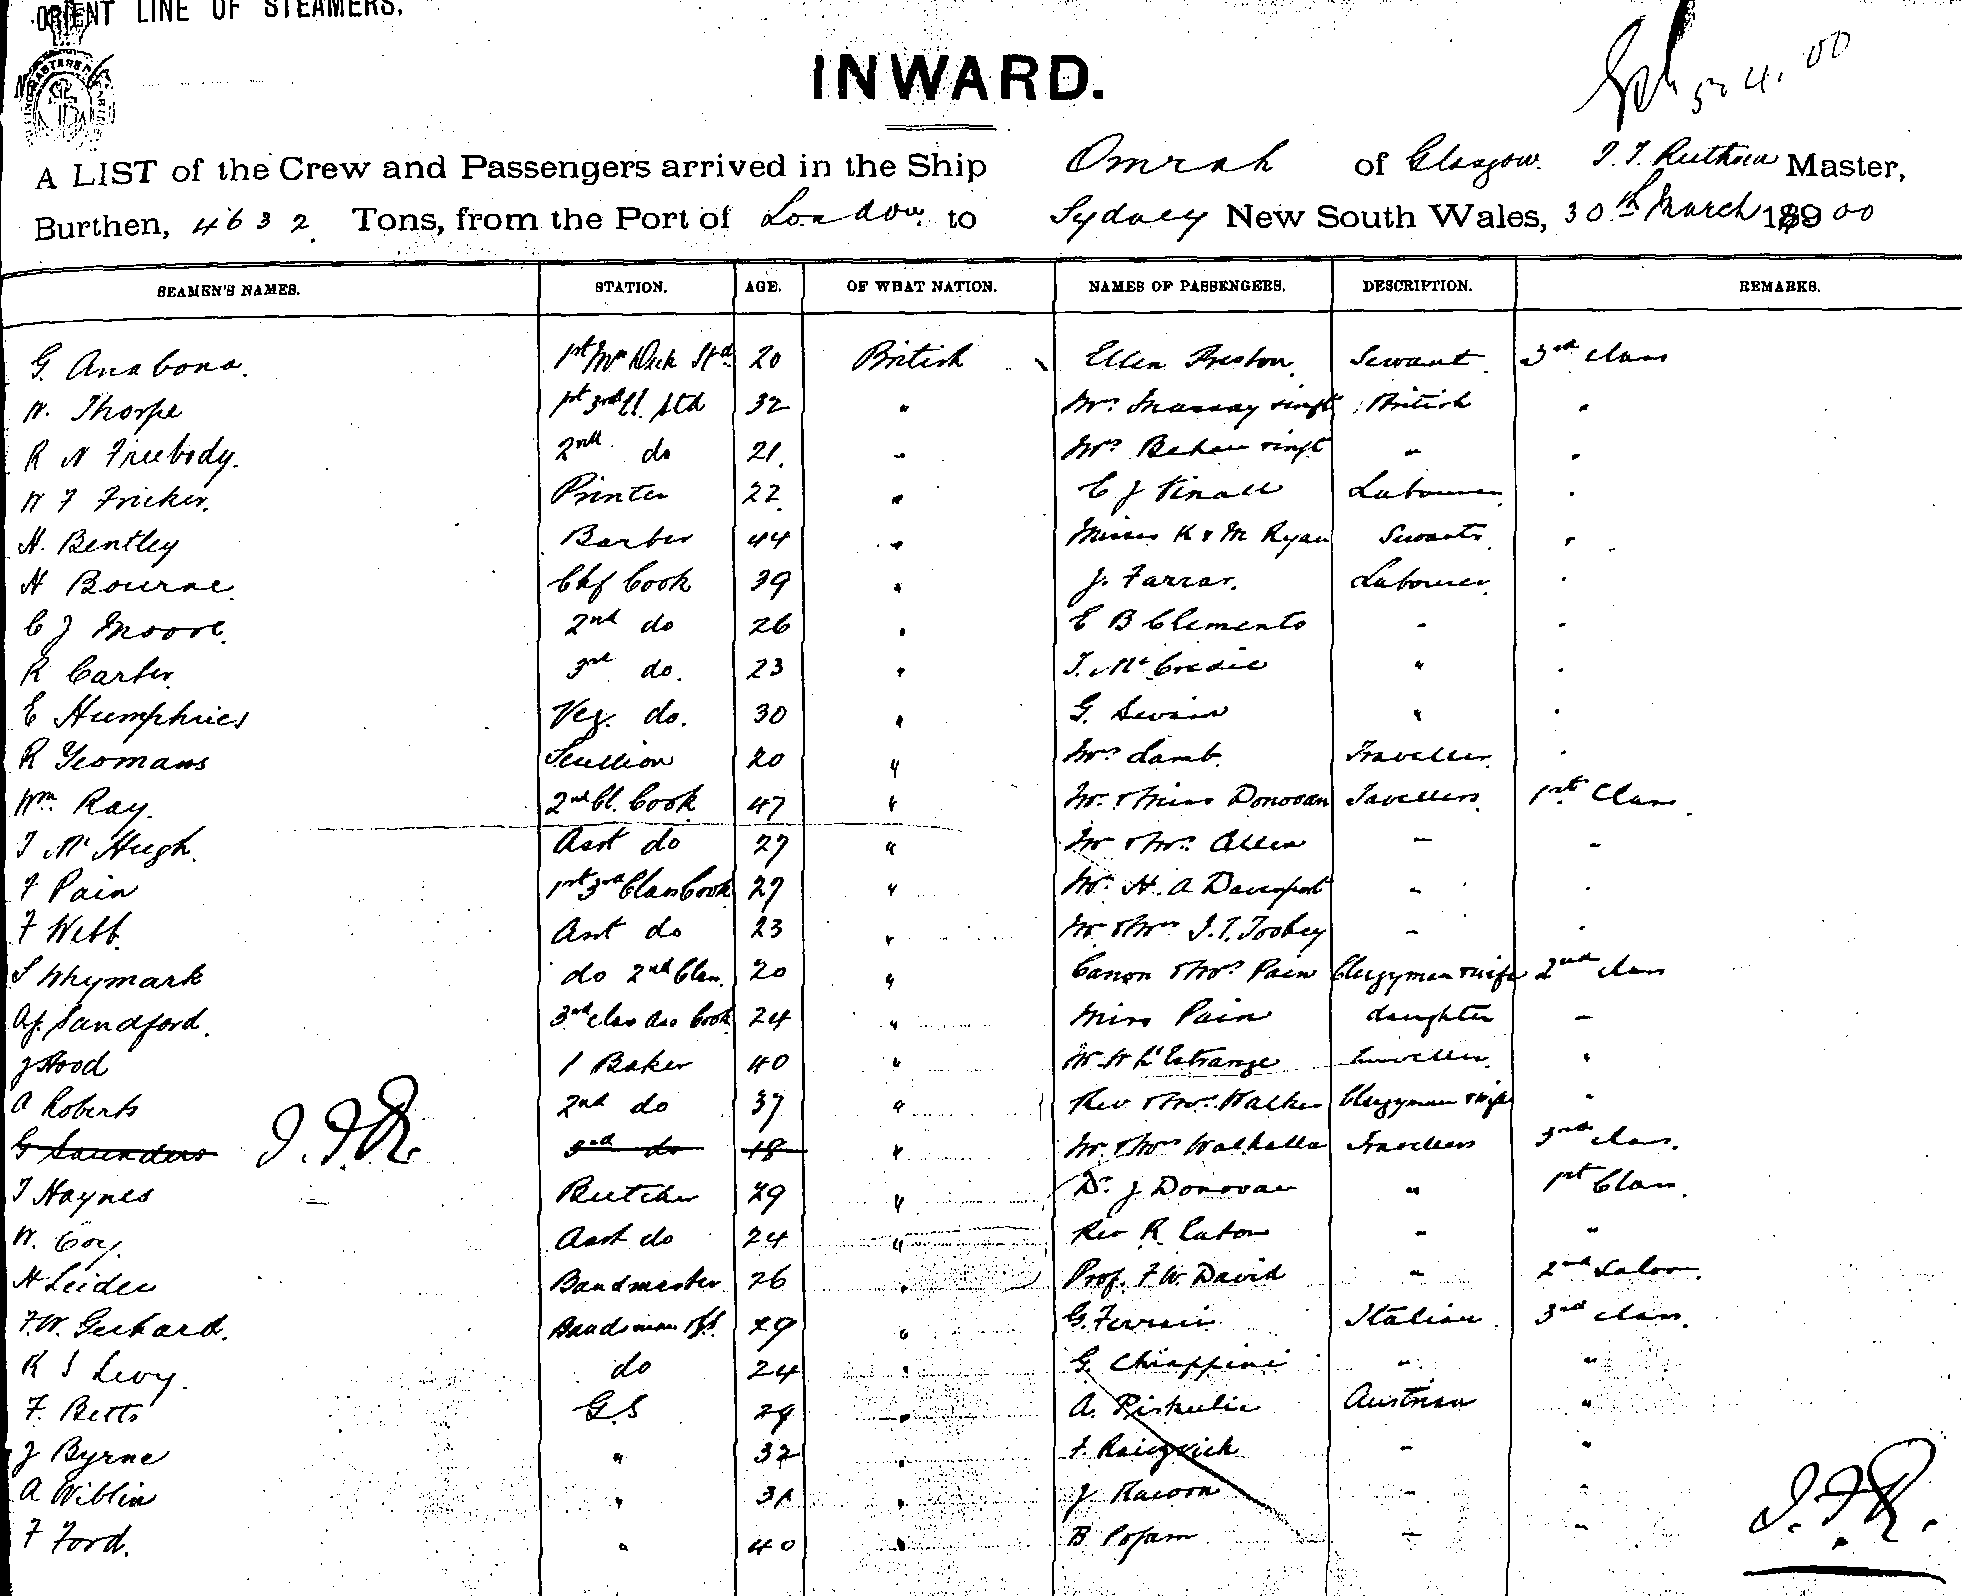 ORIENT LINE OF STEAMERS.
INWARD.
5. 4. 00
A LIST of the Crew and Passengers arrived in the Ship Omrah of Glasgow. Master,
Burthen, 4632 Tons, from the Port of London to Sydney New South Wales, 30th March 1900
SEAMEN'S NAMES. STATION. AGE. OF WHAT NATION. NAMES OF PASSENGERS. DESCRIPTION. REMARKS.
G. 20 British Ellen Preston Servant 3rd class
W. Thorpe 1st 3rd Cl. Std 32 " Mrs Massay & inft British "
R N Freebody. 2nd do 21 " Mrs & inft " "
W F Fricker. Printer 22 " C J Vinall Labourer "
H. Bentley Barber 44 " Misses K & M Ryan Servants "
H Bourne Chf Cook 39 " J. Farrar. Labourer "
C J Moore. 2nd do 26 " E B Clements " "
R Carter 3rd do. 23 " J. McCredie " "
E Humphries Veg. do. 30 " G. Swain " "
R Yeomans Scullion 20 " Mrs Lamb. Traveller "
Wm Ray. 2nd Cl. Cook 47 " Mr & Miss Donovan Travellers 1st Class
J McHugh. Asst do 27 " Mr & Mrs Allen " "
F Pain 1st 3rd Class Cook 27 " Mr H. A Davenport " "
F Webb. Asst do 23 " Mr & Mrs J.T. Toohey " "
S Whymark do 2nd Class 20 " Canon & Mrs Pain Clergyman & wife 2nd class
A.J. Sandford. 3rd class Ass Cook 24 " Miss Pain daughter "
J Hood 1 Baker 40 " Mr H L'Estrange Traveller "
A Roberts 2nd do 37 " Rev & Mrs Walker Clergyman & wife "
G Saunders J.F.R. 3rd do 18 " Mr & Mrs Walhalla Travellers 3rd class.
J Haynes Butcher 29 " Dr. J Donovan " 1st Class.
W. Coy. Asst do 24 " Rev R. Eaton " "
H Leiden Bandmaster 26 " Prof. F.W. David " 2nd Saloon.
F.W. Gerhard. Bandsman 29 " G. Italian 3rd class.
R S Levy. do 24 " G. Chiappini " "
F. Betts G.S 29 " A. Piskulic Austrian "
J Byrne " 32 " F. " "
A Wiblin " 31 " J Racoon " "
F Ford. " 40 " B " "
J.F.R.